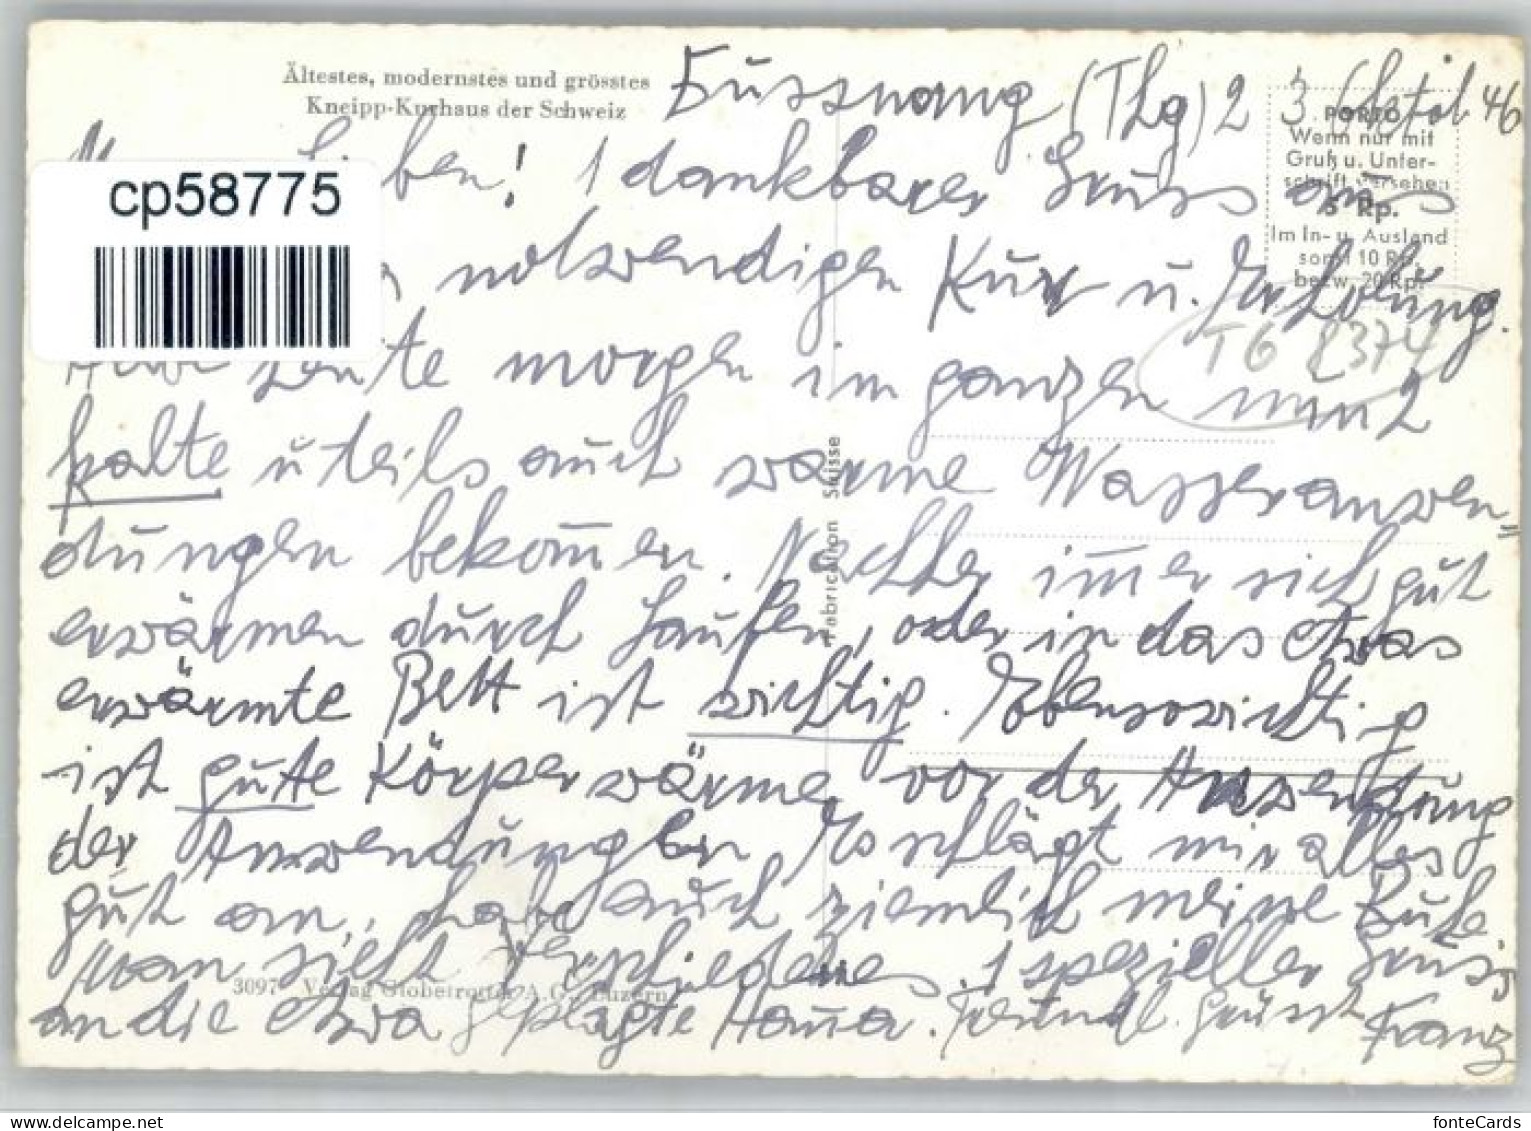 Ältestes, modernstes und grösstes
Kneipp-Kurhaus der Schweiz
Fussnang (Thg) 23. 46
PORTO
Wenn nur mit
Gruß u. Unter-
schrift versehen
5 Rp.
Im In- u. Ausland
sonst 10 Rp.
bezw. 20 Rp.
cp58775
lieben! 1 dankbarer Gruss aus
notwendigen Kur u. Erholung.
heute morgen im ganzen nun 2
kalte u teils auch warme Wasseranwen=
dungen bekom̄en. Nachher im̄er sich gut
erwärmen durch Laufen, oder in das etwas
erwärmte Bett ist wichtig. Ebensowichtig
ist gute Körperwärme vor der Anwendung
der Anwendungen. Es schlägt mir alles
gut an, habe auch ziemlich meine Ruhe
Man sieht verschiedenes 1 spezieller Gruss
an die etwa geplagte Mama. Freundl. Grüsst Franz
TG 8374
Fabrication Suisse
3097 Verlag Globetrotter A.G., Luzern
delcampe.net
fonteCards